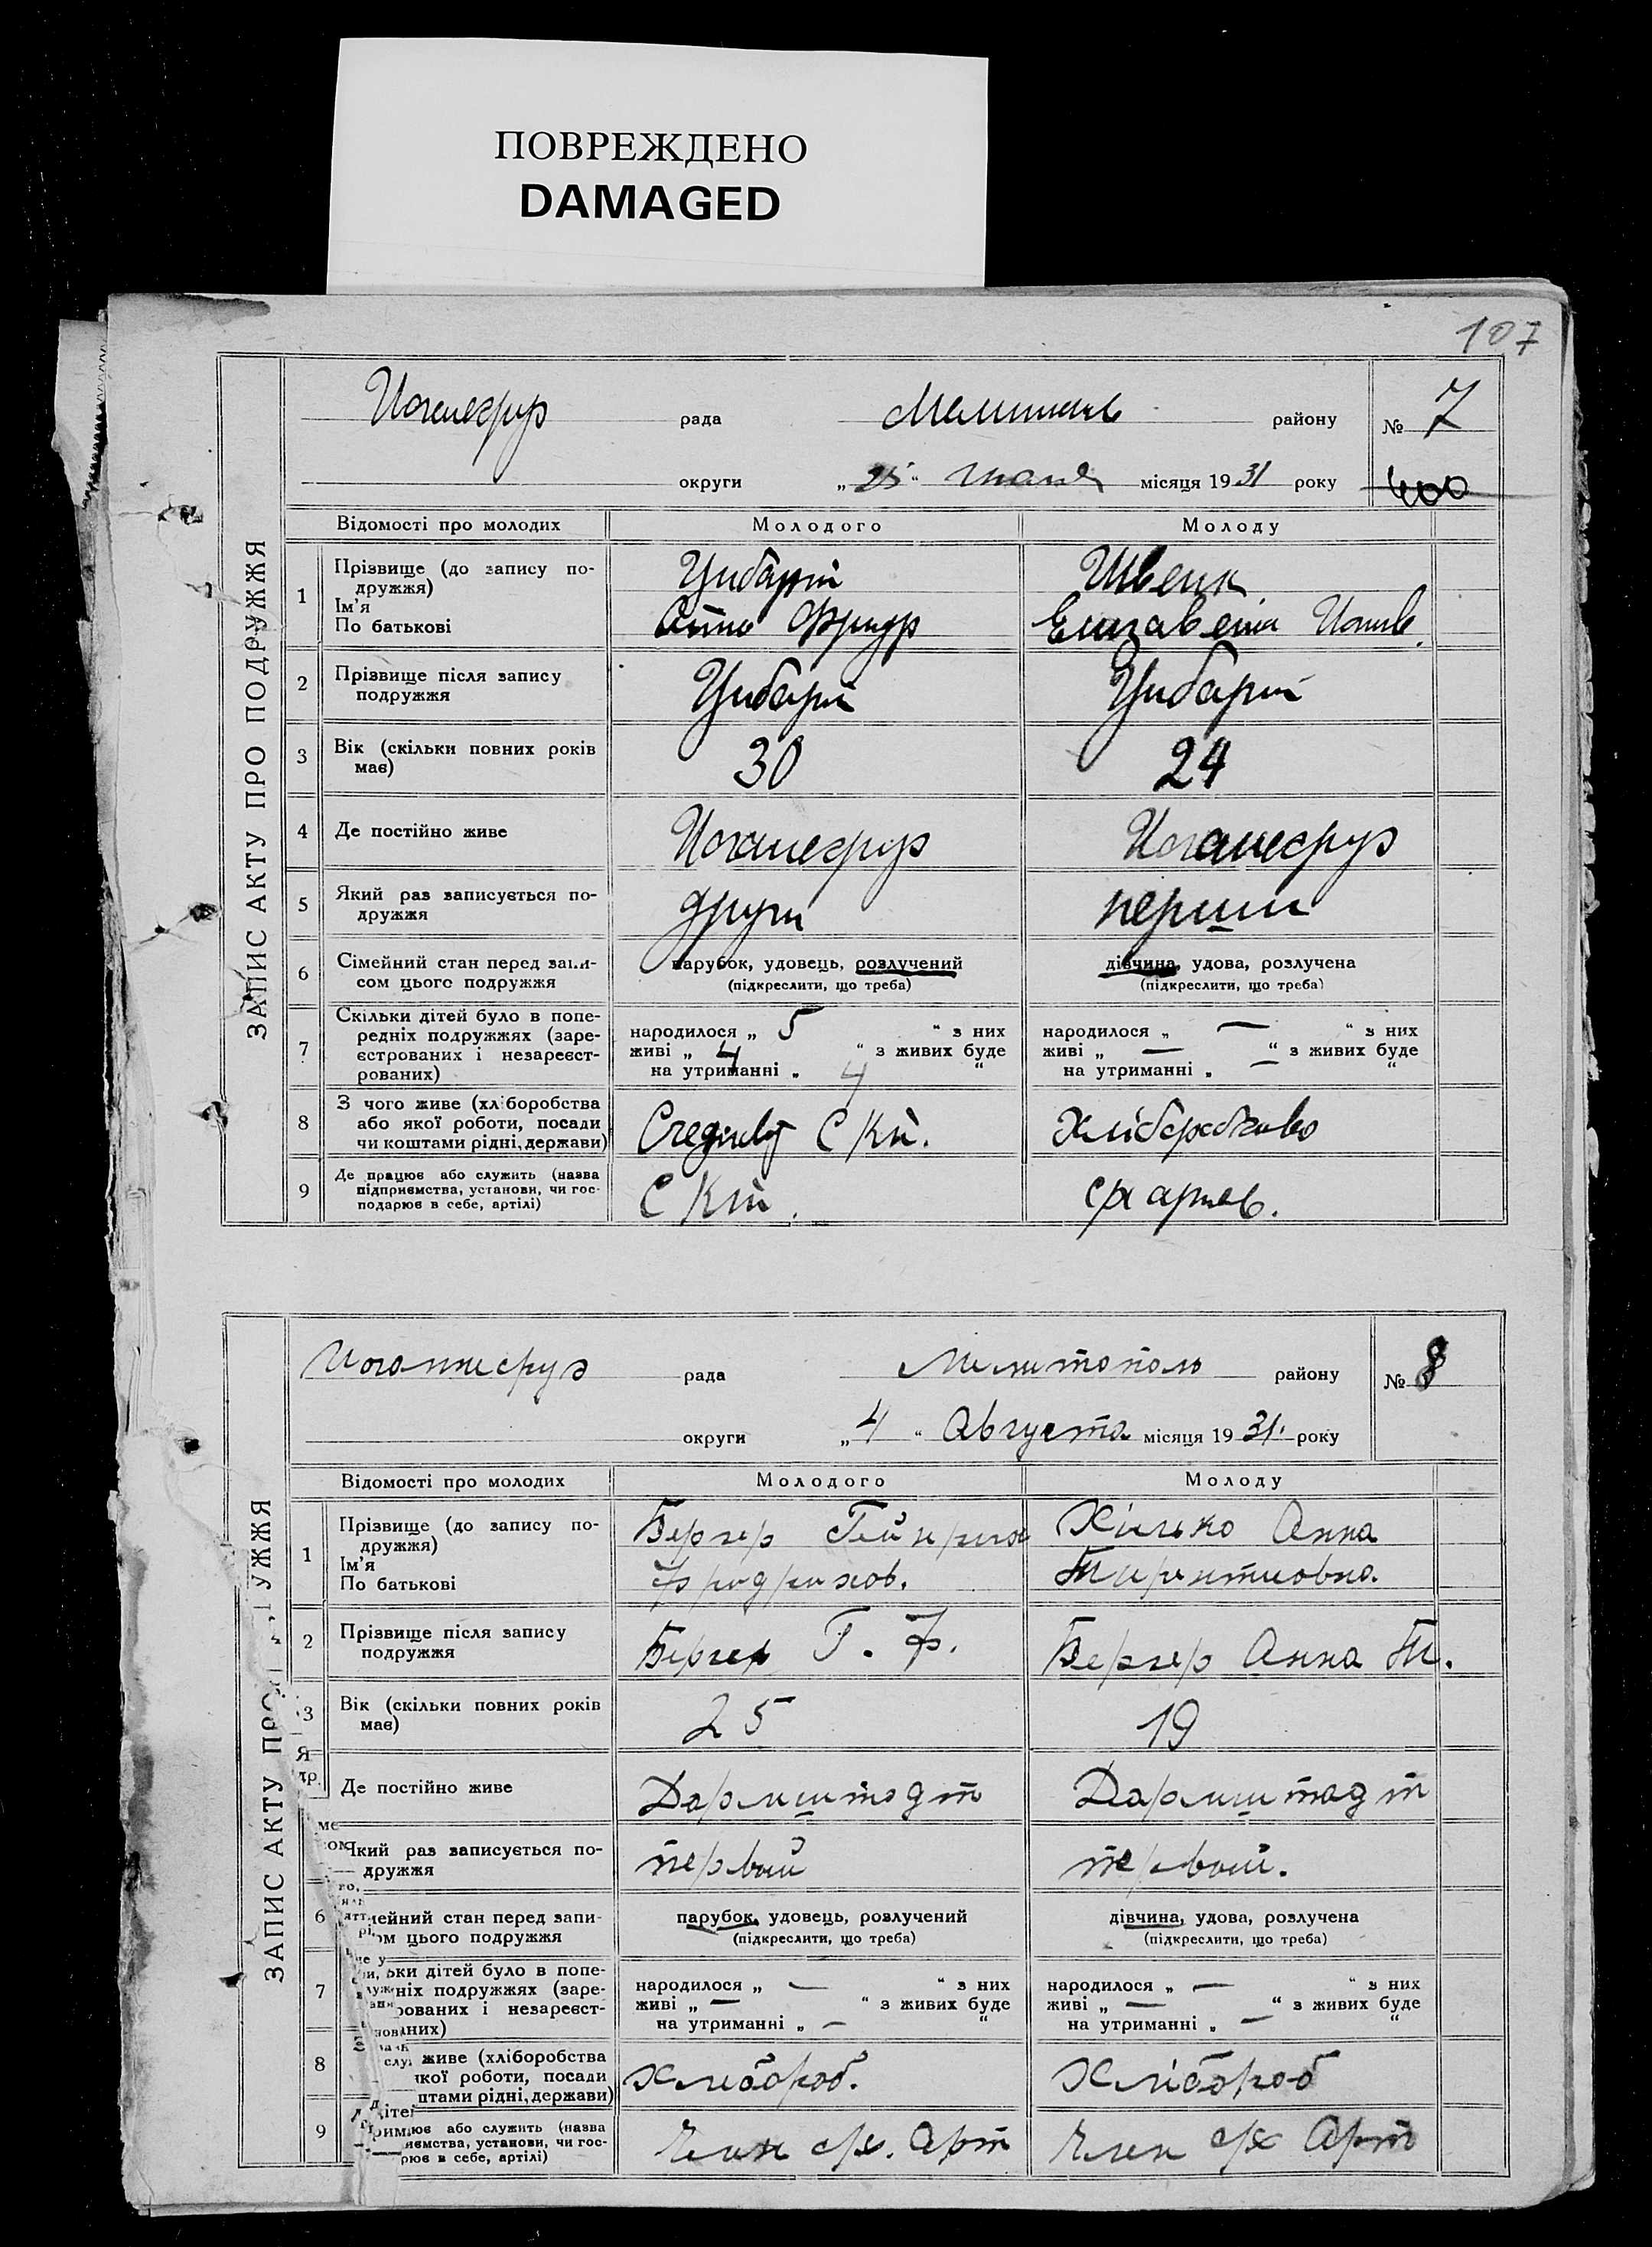 ПОВРЕЖДЕНО
DAMAGED
107
ЗАПИС АКТУ ПРО ПОДРУЖЖЯ
Иоганесруэ рада районy № 7
округи „25“ місяця 1931 року 400
Відомості про молодих Молодого Молоду
1 Прізвище (до запису по-
дружжя)
Ім’я
По батькові
Цибарт Швенк
Отто Фридр Елизавета
2 Прізвище після запису
подружжя
Цибарт Цибарт
3 Вік (скільки повних років
має)
30 24
4 Де постійно живе Иоганесруэ Иоганесруэ
5 Який раз записується по-
дружжя
други перший
6 Сімейний стан перед запи-
сом цього подружжя
парубок, удовець, розлучений дівчина, удова, розлучена
(підкреслити, що треба) (підкреслити, що треба)
7 Скільки дітей було в попе-
редніх подружжях (заре-
єстрованих і незареєст-
рованих)
народилося „ 5 “ з них народилося „ — “ з них
живі „ 4 “ з живих буде живі „ — “ з живих буде
на утриманні „ 4 “ на утриманні „ — “
8 З чого живе (хліборобства
або якої роботи, посади
чи коштами рідні, держави)
9 Де працює або служить (назва
підприємства, установи, чи гос-
подарює в себе, артілі)
ЗАПИС АКТУ ПРО УЖЖЯ
Иоганнесруэ рада Мелитополь району № 8
округи „4“ Августа місяця 1931. року
Відомості про молодих Молодого Молоду
1 Прізвище (до запису по-
дружжя)
Ім’я
По батькові
Бергер Гейнрих Хилько Анна
Фридрихов. Терентиовна.
2 Прізвище після запису
подружжя
Бергер Г. Ф. Бергер Анна Т.
3 Вік (скільки повних років
має)
25 19
Де постійно живе Дармштадт Дармштадт
Який раз записується по-
дружжя
первый первый.
6 мейний стан перед запи-
ом цього подружжя
парубок, удовець, розлучений дівчина, удова, розлучена
(підкреслити, що треба) (підкреслити, що треба)
7 ьки дітей було в попе-
ніх подружжях (заре-
рованих і незареєст-
ваних)
народилося „ — “ з них народилося „ — “ з них
живі „ — “ з живих буде живі „ — “ з живих буде
на утриманні „ — “ на утриманні „ — “
8 живе (хліборобства
якої роботи, посади
штами рідні, держави)
хлібороб. Хлібороб
9 або служить (назва
ємства, установи, чи гос-
рює в себе, артілі)
Член с/х. Арт Член с/х Арт